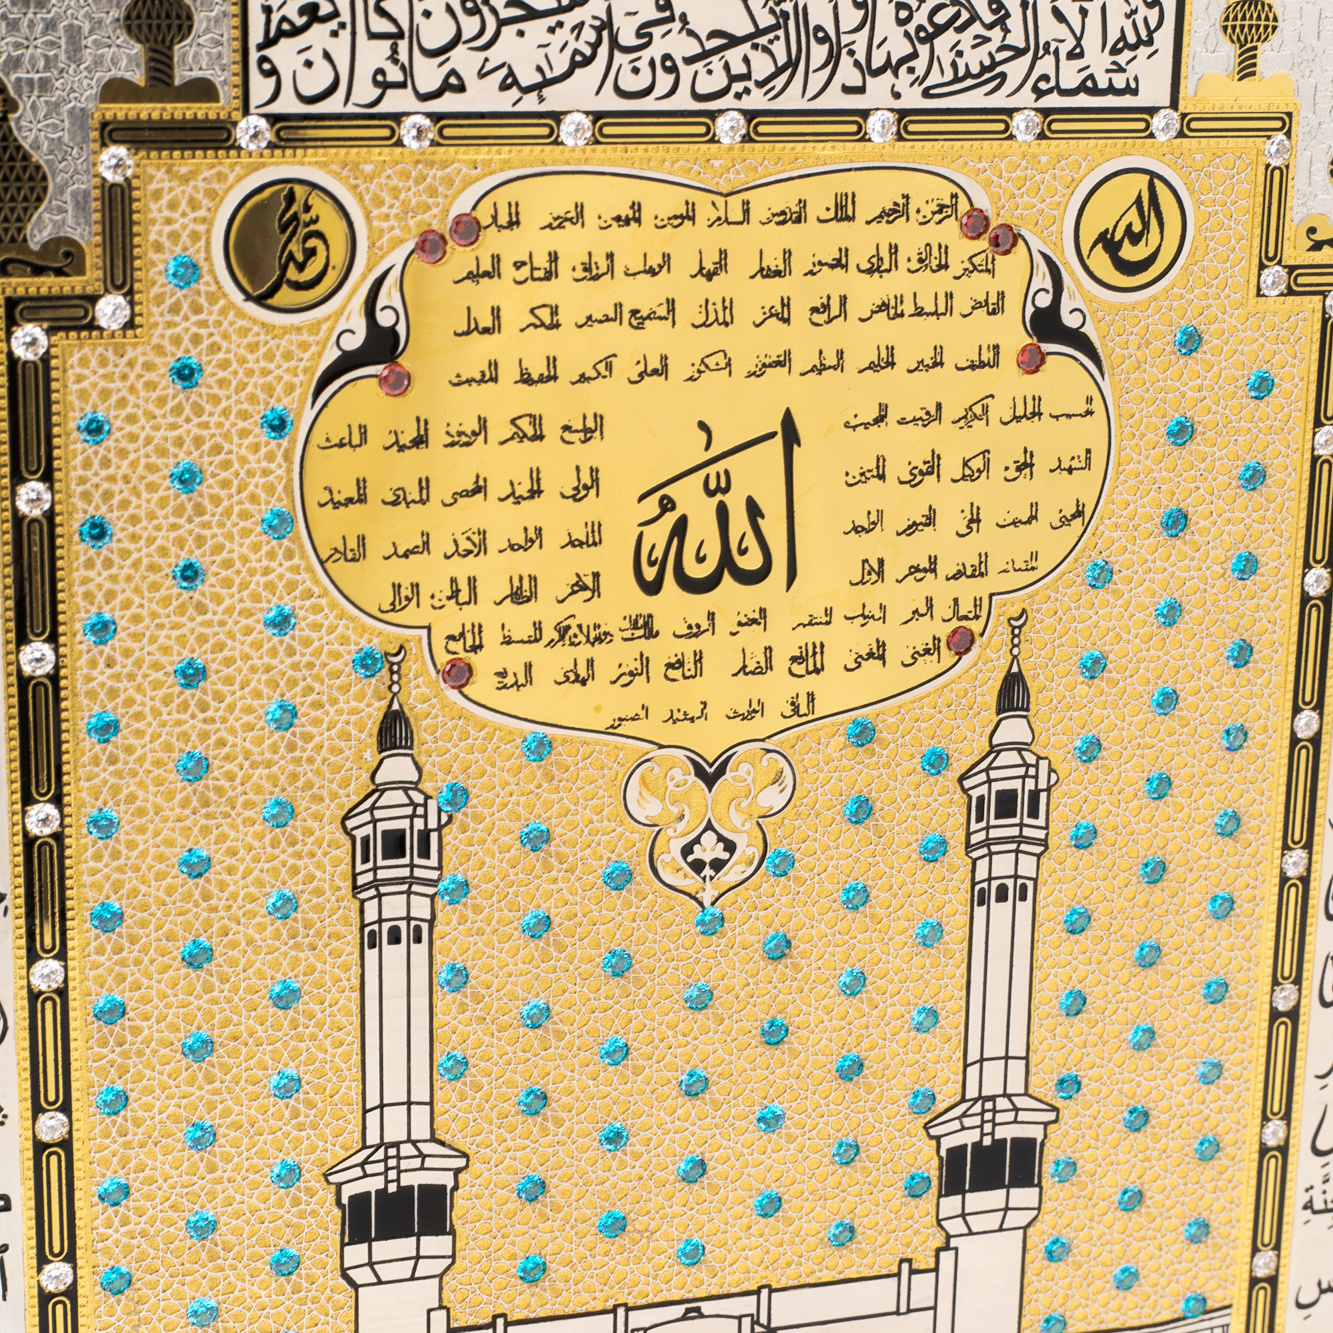 ولله الاسماء الحسنى فادعوه بها وذروا الذين يلحدون في اسمائه سيجزون ما كانوا يعملون
محمد
الله
الرحمن الرحيم الملك القدوس السلام المومن المهيمن العزيز الجبار
المتكبر الخالق الباري المصور الغفار القهار الوهاب الرزاق الفتاح العليم
القابض الباسط الخافض الرافع المعز المذل السميع البصير الحكم العدل
اللطيف الخبير الحليم العظيم الغفور الشكور العلي الكبير الحفيظ المقيت
الحسيب الجليل الكريم الرقيب المجيب
الواسع الحكيم الودود المجيد الباعث
الشهيد الحق الوكيل القوي المتين
الولي الحميد المحصي المبدي المعيد
المحيي المميت الحي القيوم الواجد
الماجد الواحد الاحد الصمد القادر
المقتدر المقدم الموخر الاول
الاخر الظاهر الباطن الوالي
الله
المتعال البر التواب المنتقم العفو الروف مالك الملك ذوالجلال والاكرام المقسط الجامع
الغني المغني المانع الضار النافع النور الهادي البديع
الباقي الوارث الرشيد الصبور